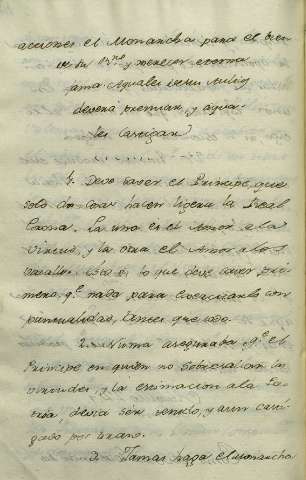 acciones el Monarcha para el bien
y merecer eterna
fama Aquales
devera premiar, y aqua-
les castigar
1. Deve saver el Principe, que
solo dos cosas hacen ligera la Real
Corona. La una es el Amor a la
Virtud, y la otra el Amor a los
vasallos. esto es lo que deve saver pri-
mero, qe. nada para executarlo con
puntualidad, antes que todo.
2. Numa aseguraba qe. el
Principe en quien no sobresalian las
virtudes, y la estimacion a la Pa-
tria, devia ser tenido, y aun casti-
gado por tirano.
3. Jamas haga el Monarcha